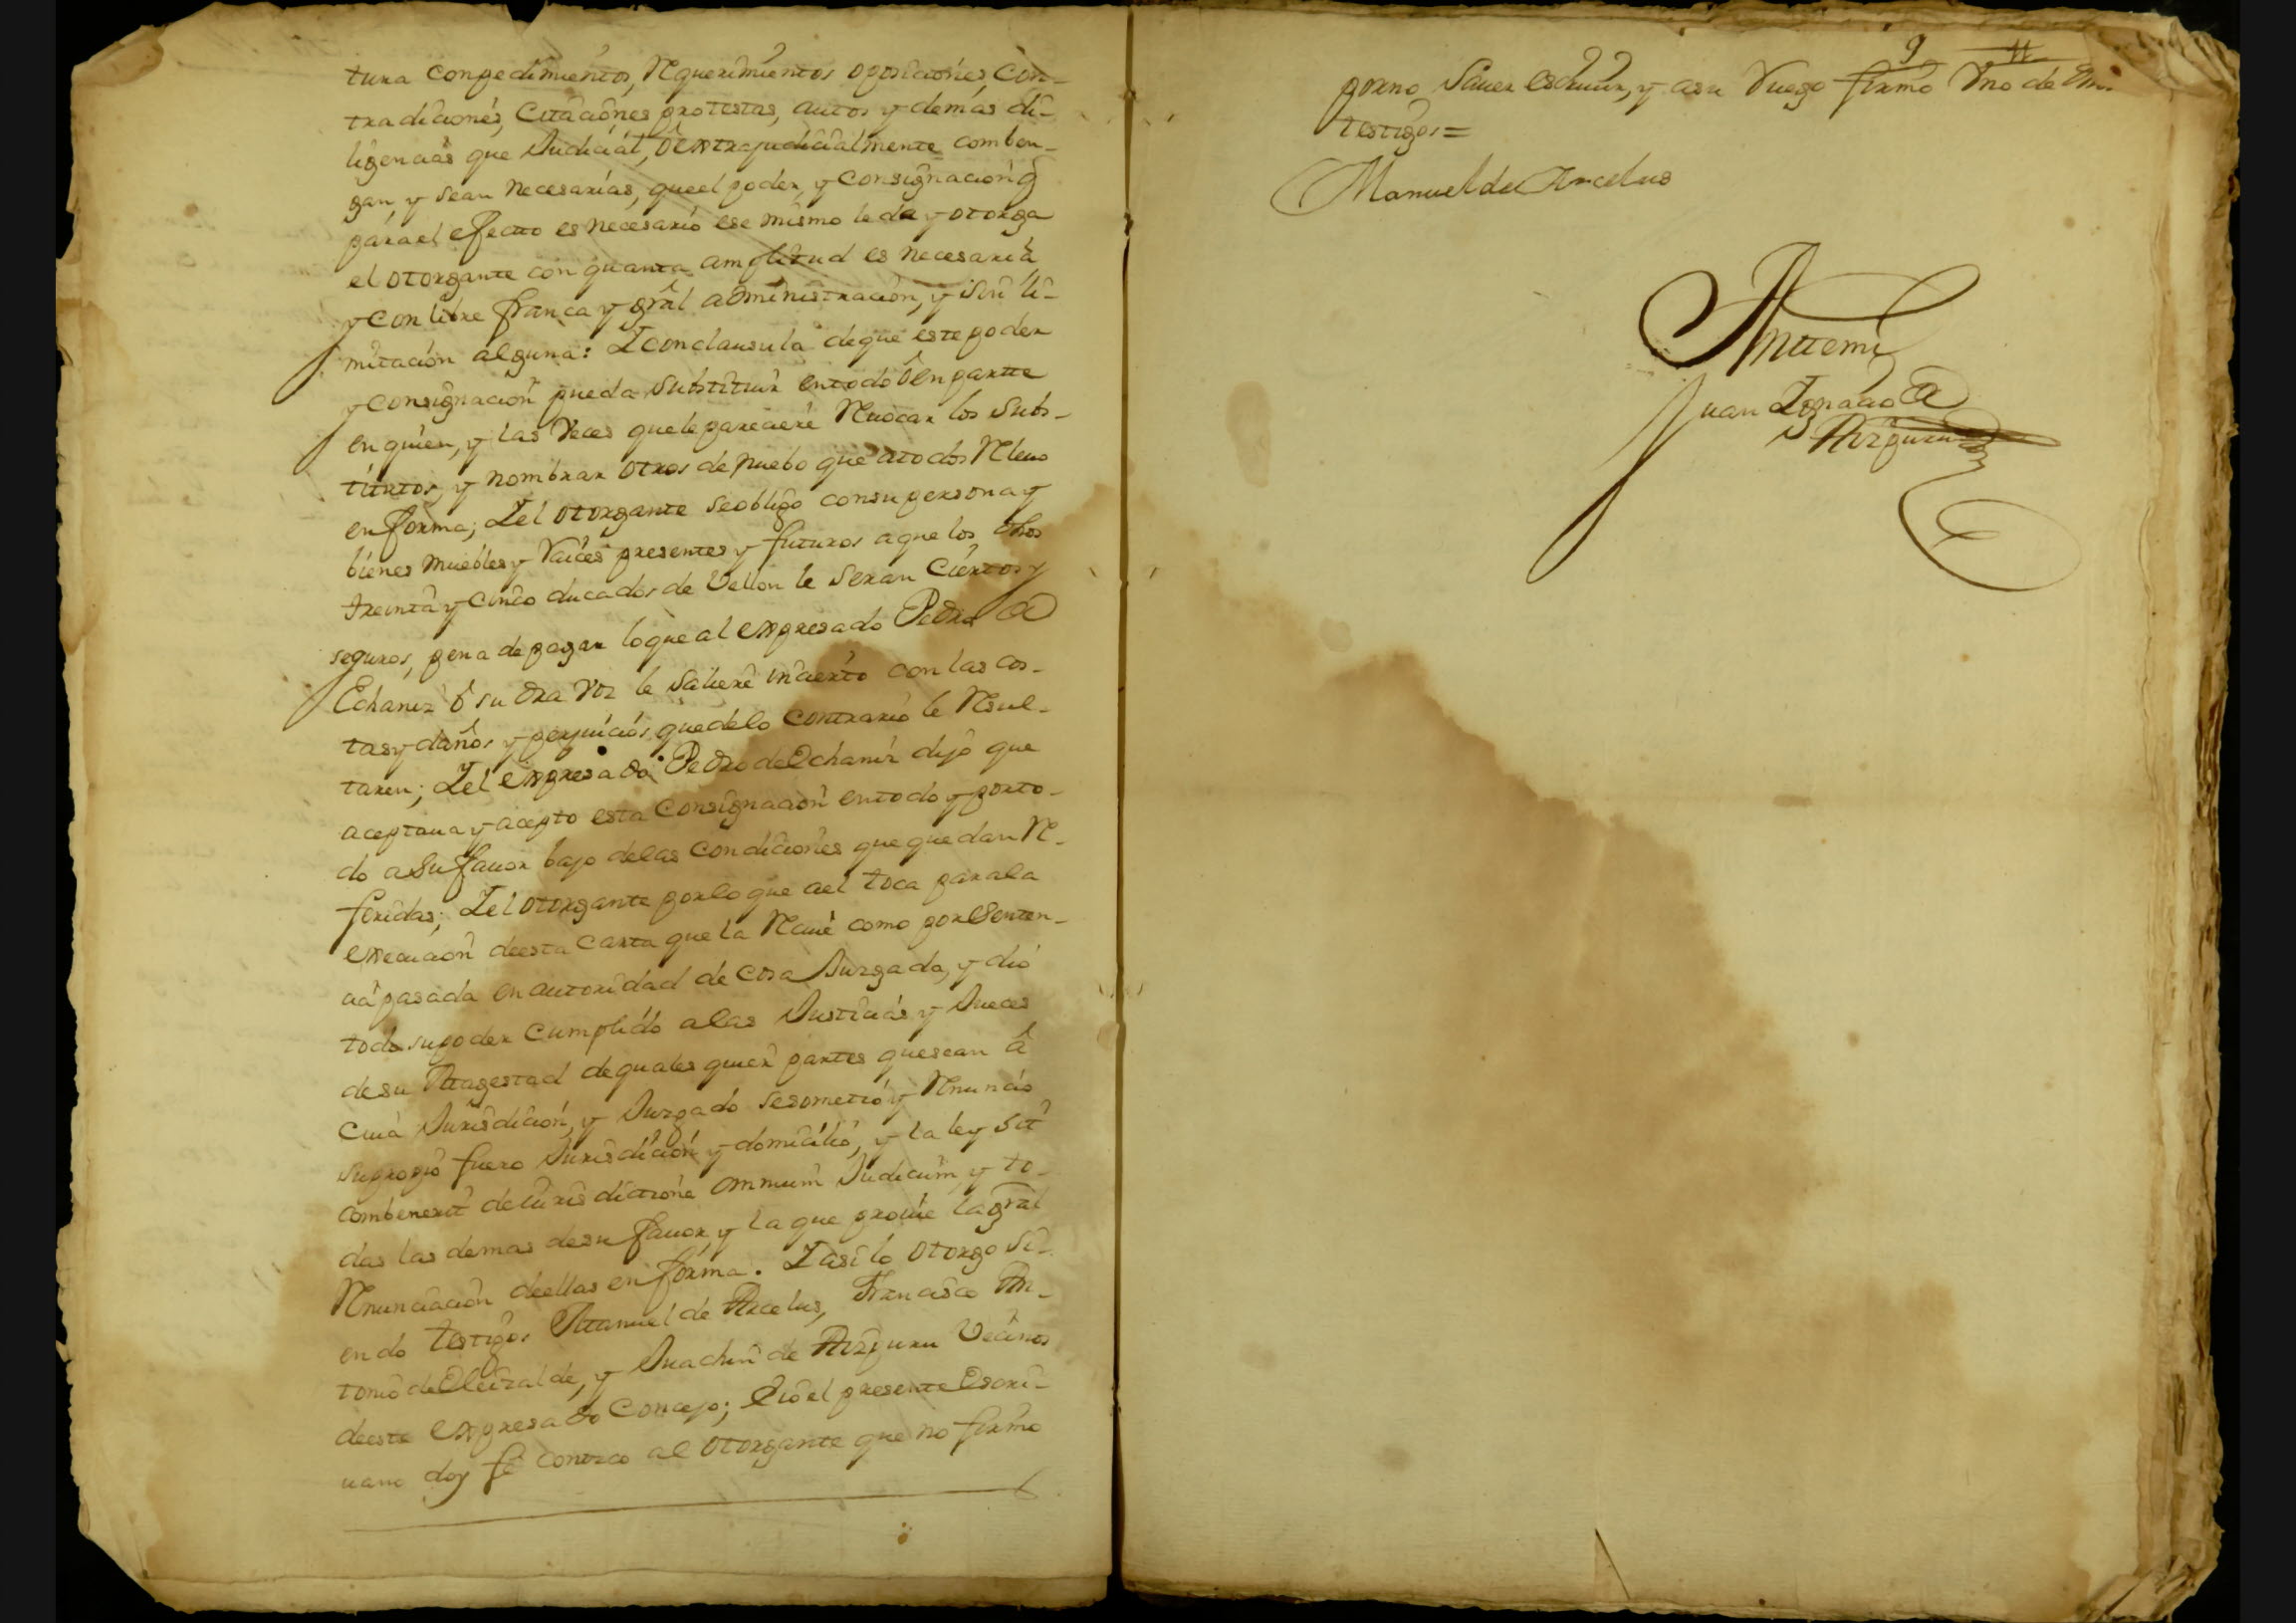 tura con pedimientos, Requerimientos oposiciones, Con-
tradiciones, Citaciones protestas, autos y demas di-
ligencias que Judicial, ô extrajudicialmente comben-
gan y sean necesarias, que el poder, y Consignacion q
para el efecto es necesario ese mismo le da y otorga
el otorgante con quanta amplitud es necesaria
y con libre franca y gral administracion, y sin li-
mitacion alguna: Y con clausula de que este poder
y consignacion pueda substituir en todo ô en partte
en quien, y las Veces que le pareciere Revocar los Subs-
titutos, y nombrar otros de nuebo que a todos Relevo
en forma; Y el otorgante se obligo con su persona y
bienes muebles y Raices presentes y futuros a que los dhos
treinta y cinco ducados de Vellon le seran Ciertos y
seguros, pena de pagar lo que al expresado Pedro de
Echaniz ô su dra voz le saliere incierto con las cos-
tas y daños y perjuicios que de lo contrario le Resul-
taren; Y el expresado Pedro de Echaniz dijo que
aceptaua y acepto esta Consignacion en todo y porto-
do a Su fauor bajo de las Condiciones que quedan Re-
feridas; Y el otorgante por lo que a el toca para la
execucion de esta Carta que la Reciue como por Senten-
cia pasada en autoridad de cosa Juzgada, y dio
todo su poder cumplido a las Justicias y Jueces
de su Magestad de quales quier partes que sean â
cuia Jurisdicion, y Juzgado se sometio y Renuncio
su propio fuero Jurisdicion y domicilio, y la ley sit
combenerit de iurisdictione omnium Judicum, y to-
das las demas de su fauor, y la que proiue la gral
Renunciacion de ellas en forma. Y asi lo otorgo si-
endo testigos Manuel de Arcelus, Francisco An-
tonio de Eleizalde, y Juachin de Aizpuru Vecinos
de este expresado Concejo; Y io el presente Escri-
uano doy fê conozco al otorgante que no firmo
9 11
porno Sauer escriuir, y asu Ruego firmo Vno de
testigos=
Manuel de Arcelus
Anttemi
Juan Ignacio de
Aizpuru